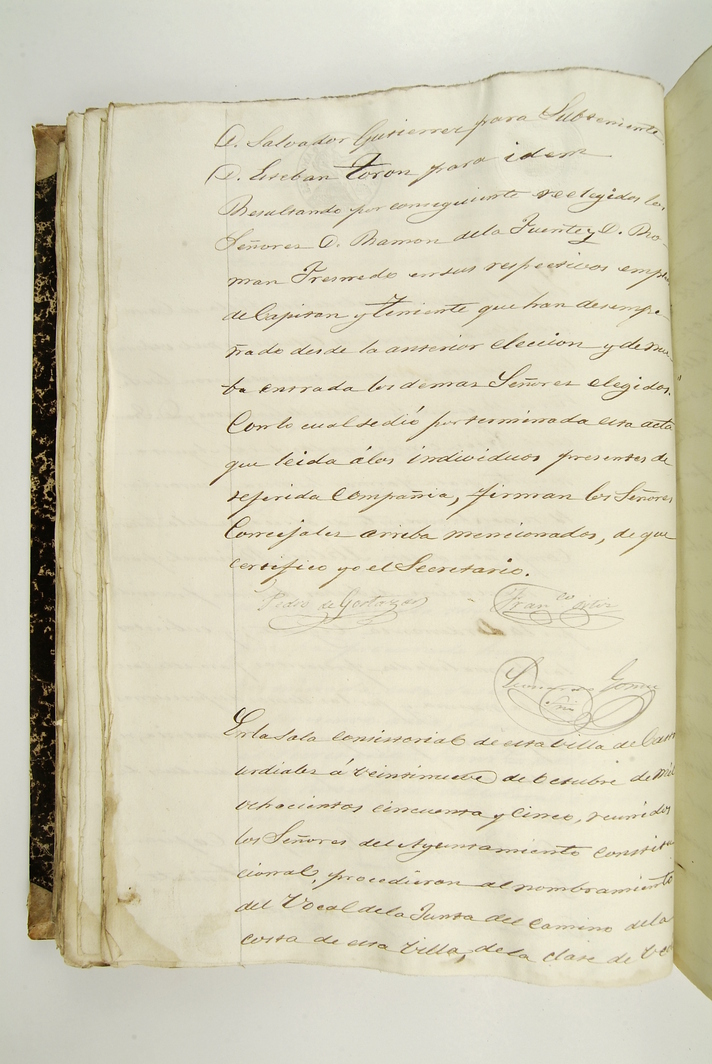 D. Salvador Gutierrez para Subteniente.
D. Esteban Toron para idem
Resultando por conseguiente reelegidos los
Señores D. Ramon dela Fuente y D. Ro-
man Fresnedo en sus respectivos emple
de Capitan y Teniente que han desempe-
ñado desde la anterior eleccion y de nu-
ba entrada los demas Señores elegidos.
Con lo cual se dió por terminada esta acta
que leida á los individuos presentes de
referida Compañia, firman los Señores
Concejales arriba mencionados, de que
certifico yo el Secretario.
Pedro de Gortazar
Fran.co
Gomez
En la Sala consistorial de esta Villa de Cast
urdiales á veintinueve de Octubre de mil
ochocientos cincuenta y cinco, reunidos
los Señores del Ayuntamiento constitu
cional, procedieron al nombramiento
del Vocal dela Junta del Camino dela
costa de esta Villa, dela clase de Vec